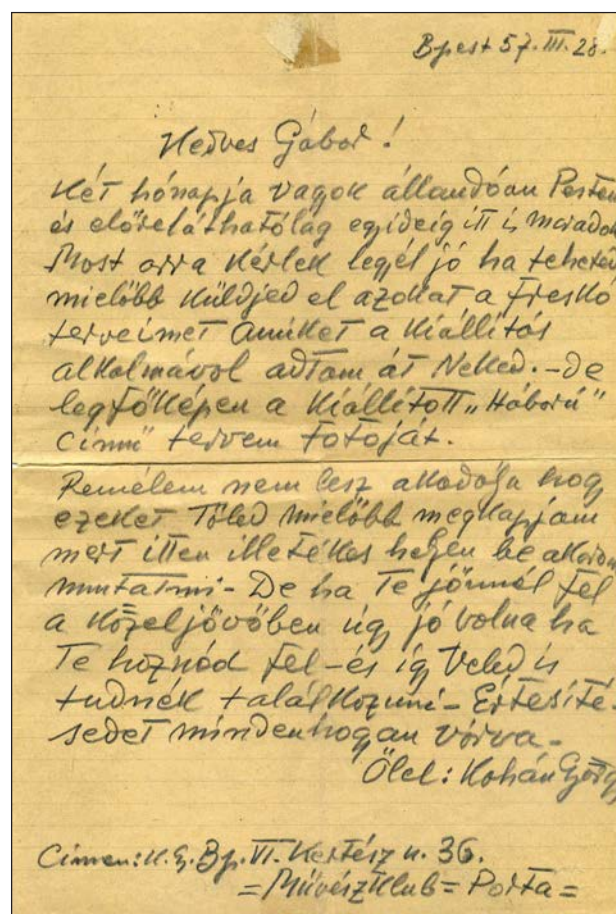 Bpest 57. III. 28.
Kedves Gábor!
Két hónapja vagok állandóan Pesten
és előreláthatólag egideig itt is maradok
Most arra Kérlek legél jó ha teheted
mielőbb Küldjed el azokat a freskó
terveimet amiket a Kiállítás
alkalmával adtam át Neked. - De
legfőképen a Kiállított „Háború"
címü tervem fotóját.
Remélem nem lesz akadálja hog
ezeket Töled mielőbb megkapjam
mert itten illetékes heljen be akarom
mutatmi - De ha Te jönnél fel
a közeljövőben úg jó volna ha
Te hoznád fel - és íg Veled is
tudnék találkozni - Értesíté-
sedet mindenhogan várva -
Ölel: Kohán Görg
Címem: K. G. Bp. VI. Kertész u. 36.
= Művészklub = Porta =